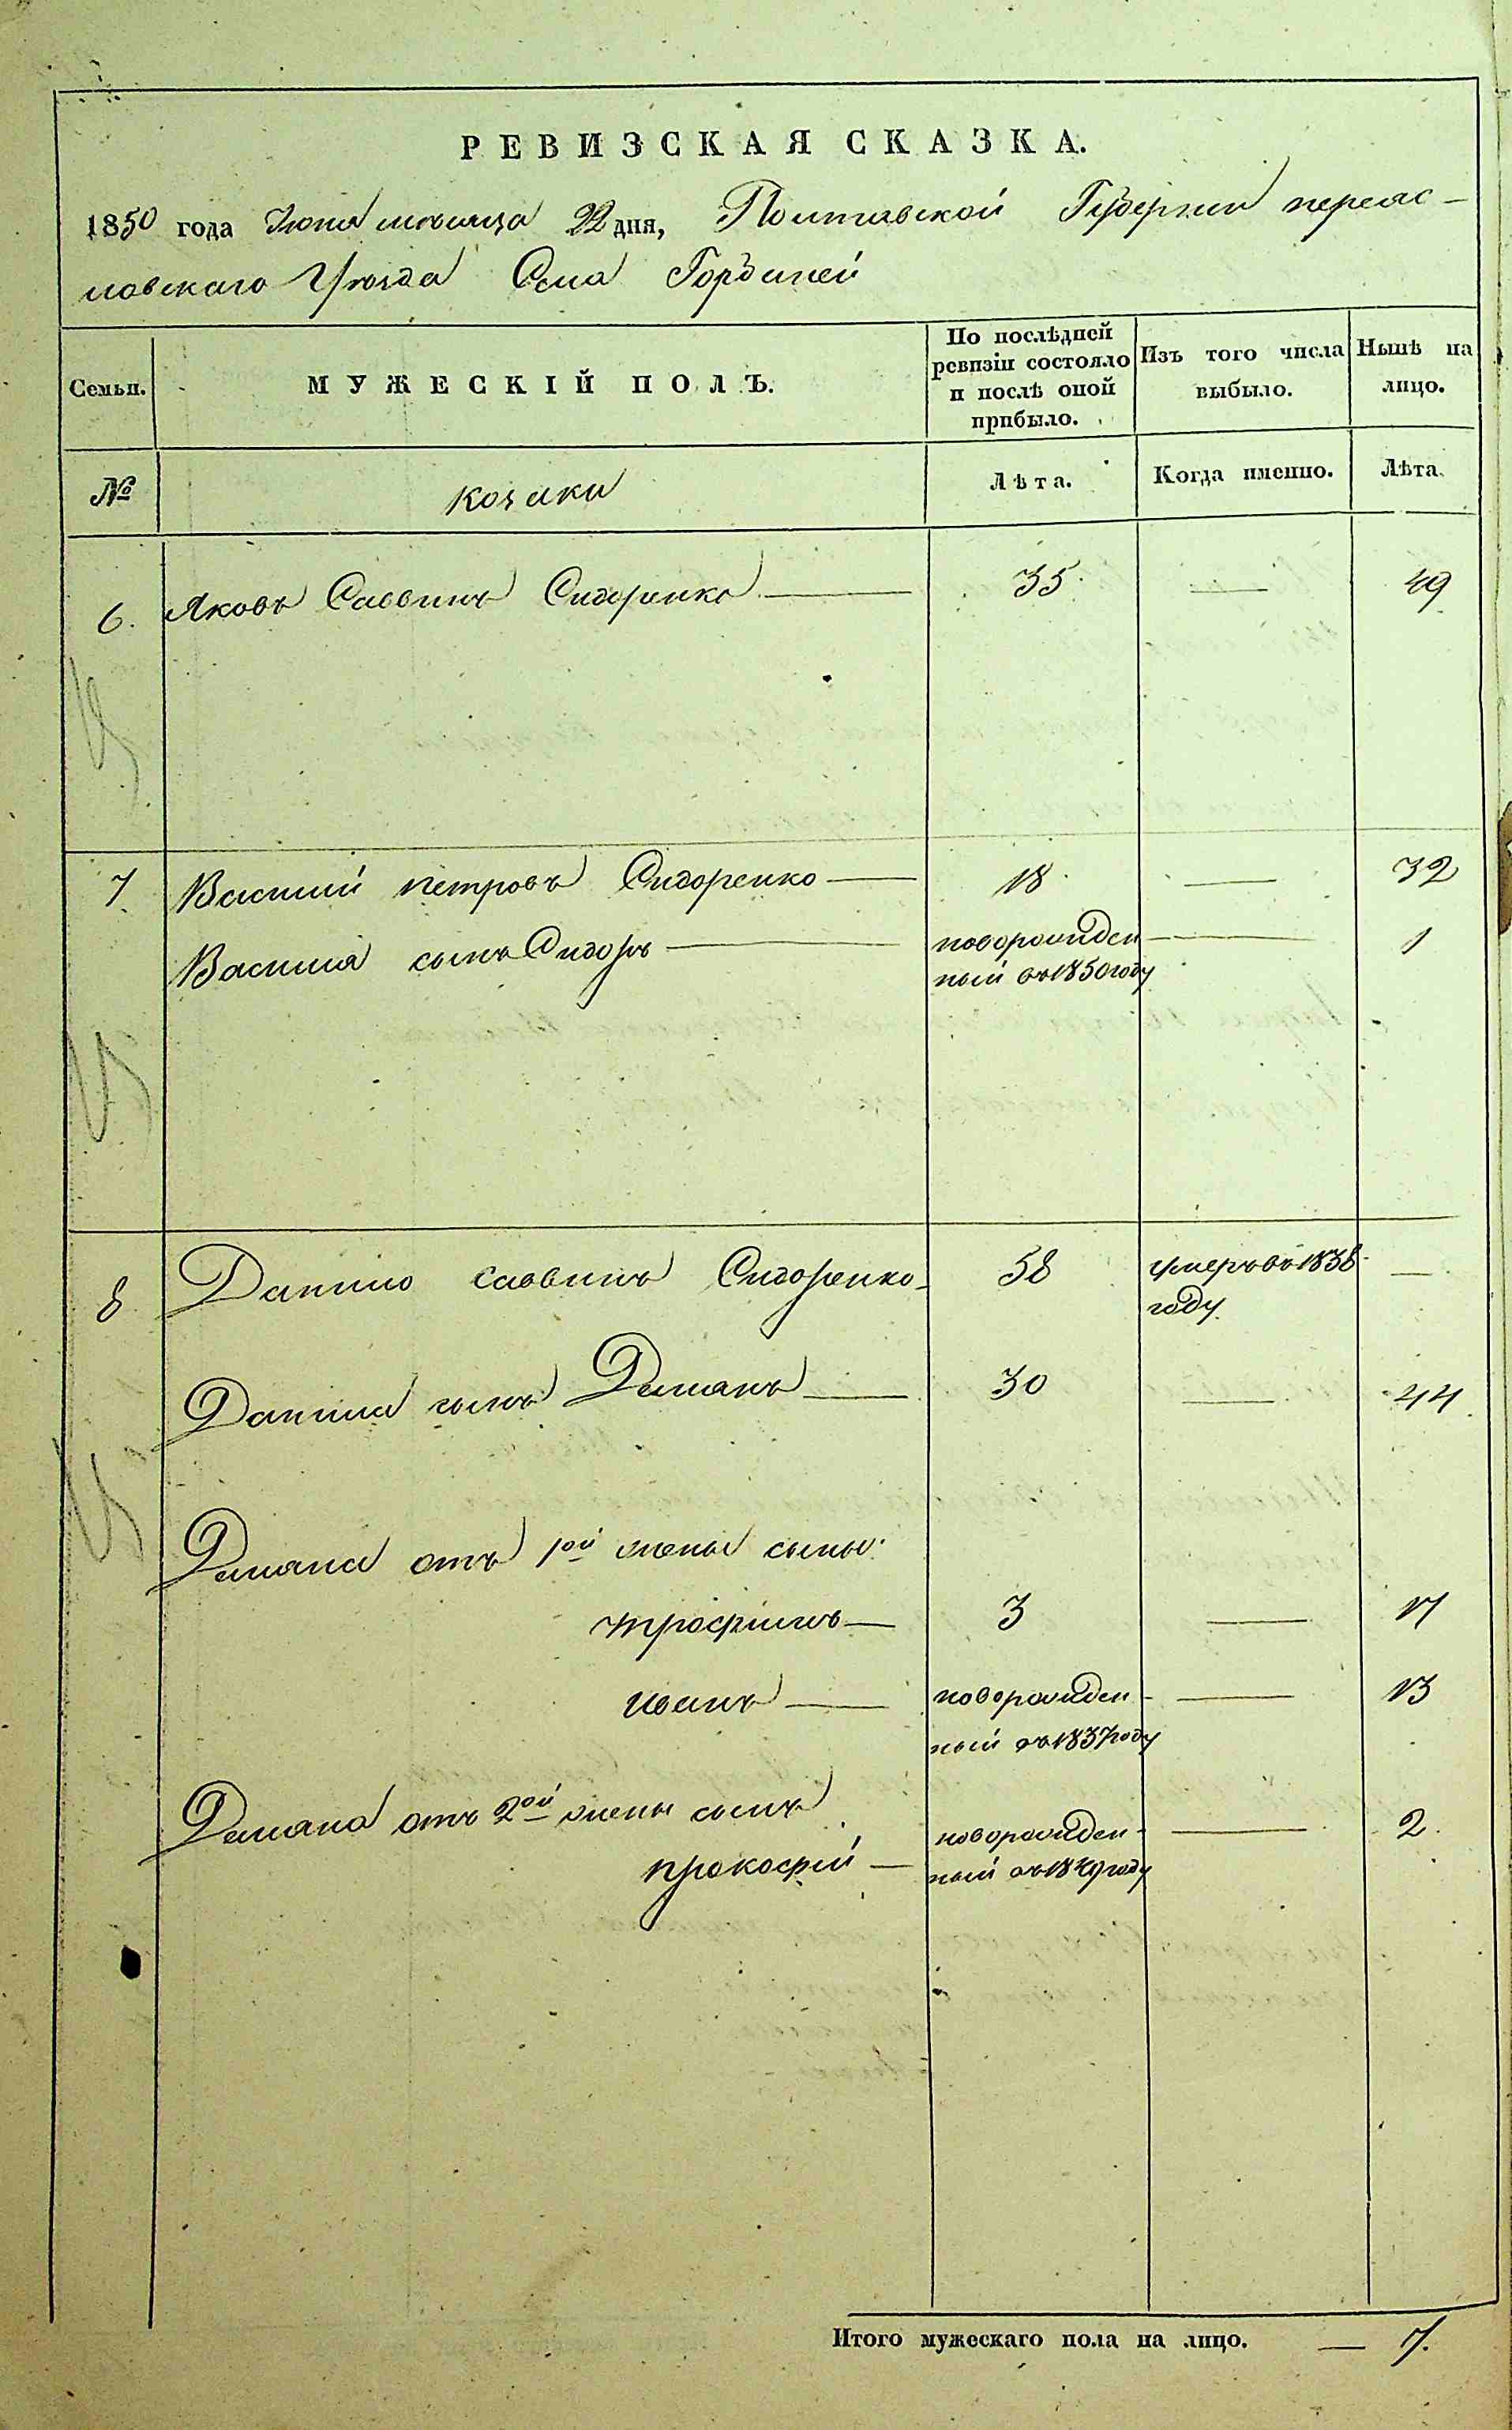 РЕВИЗСКАЯ СКАЗКА.
1850 года Июня месяца 22 дня, Полтавской Губернии переяс-
лавскаго Уезда Села Горбаней
Семьи.
МУЖЕСКІЙ ПОЛЪ.
По послѣдней ревизіи состояло и послѣ оной прибыло.
Изъ того числа выбыло.
Нынѣ на лицо.
№
козаки
Лѣта.
Когда именно.
Лѣта.
6. Яковъ Саввинъ Сидоренко — 35. — 49
7 Василий петровъ Сидоренко — 18. — 32
Василия сынъ Сидоръ — новорожден-
ный въ 1850 году — 1
8 Данило саввинъ Сидоренко 58 умеръ въ 1838
году. —
Данила сынъ Демянъ — 30 — 44
Демяна отъ 1ой жены сыны:
трофимъ — 3 — 17
иванъ — новорожден-
ный въ 1837 году — 13
Демяна отъ 2ой жены сынъ
прокофій — новорожден-
ный въ 1849 году — 2.
Итого мужескаго пола на лицо. — 7.